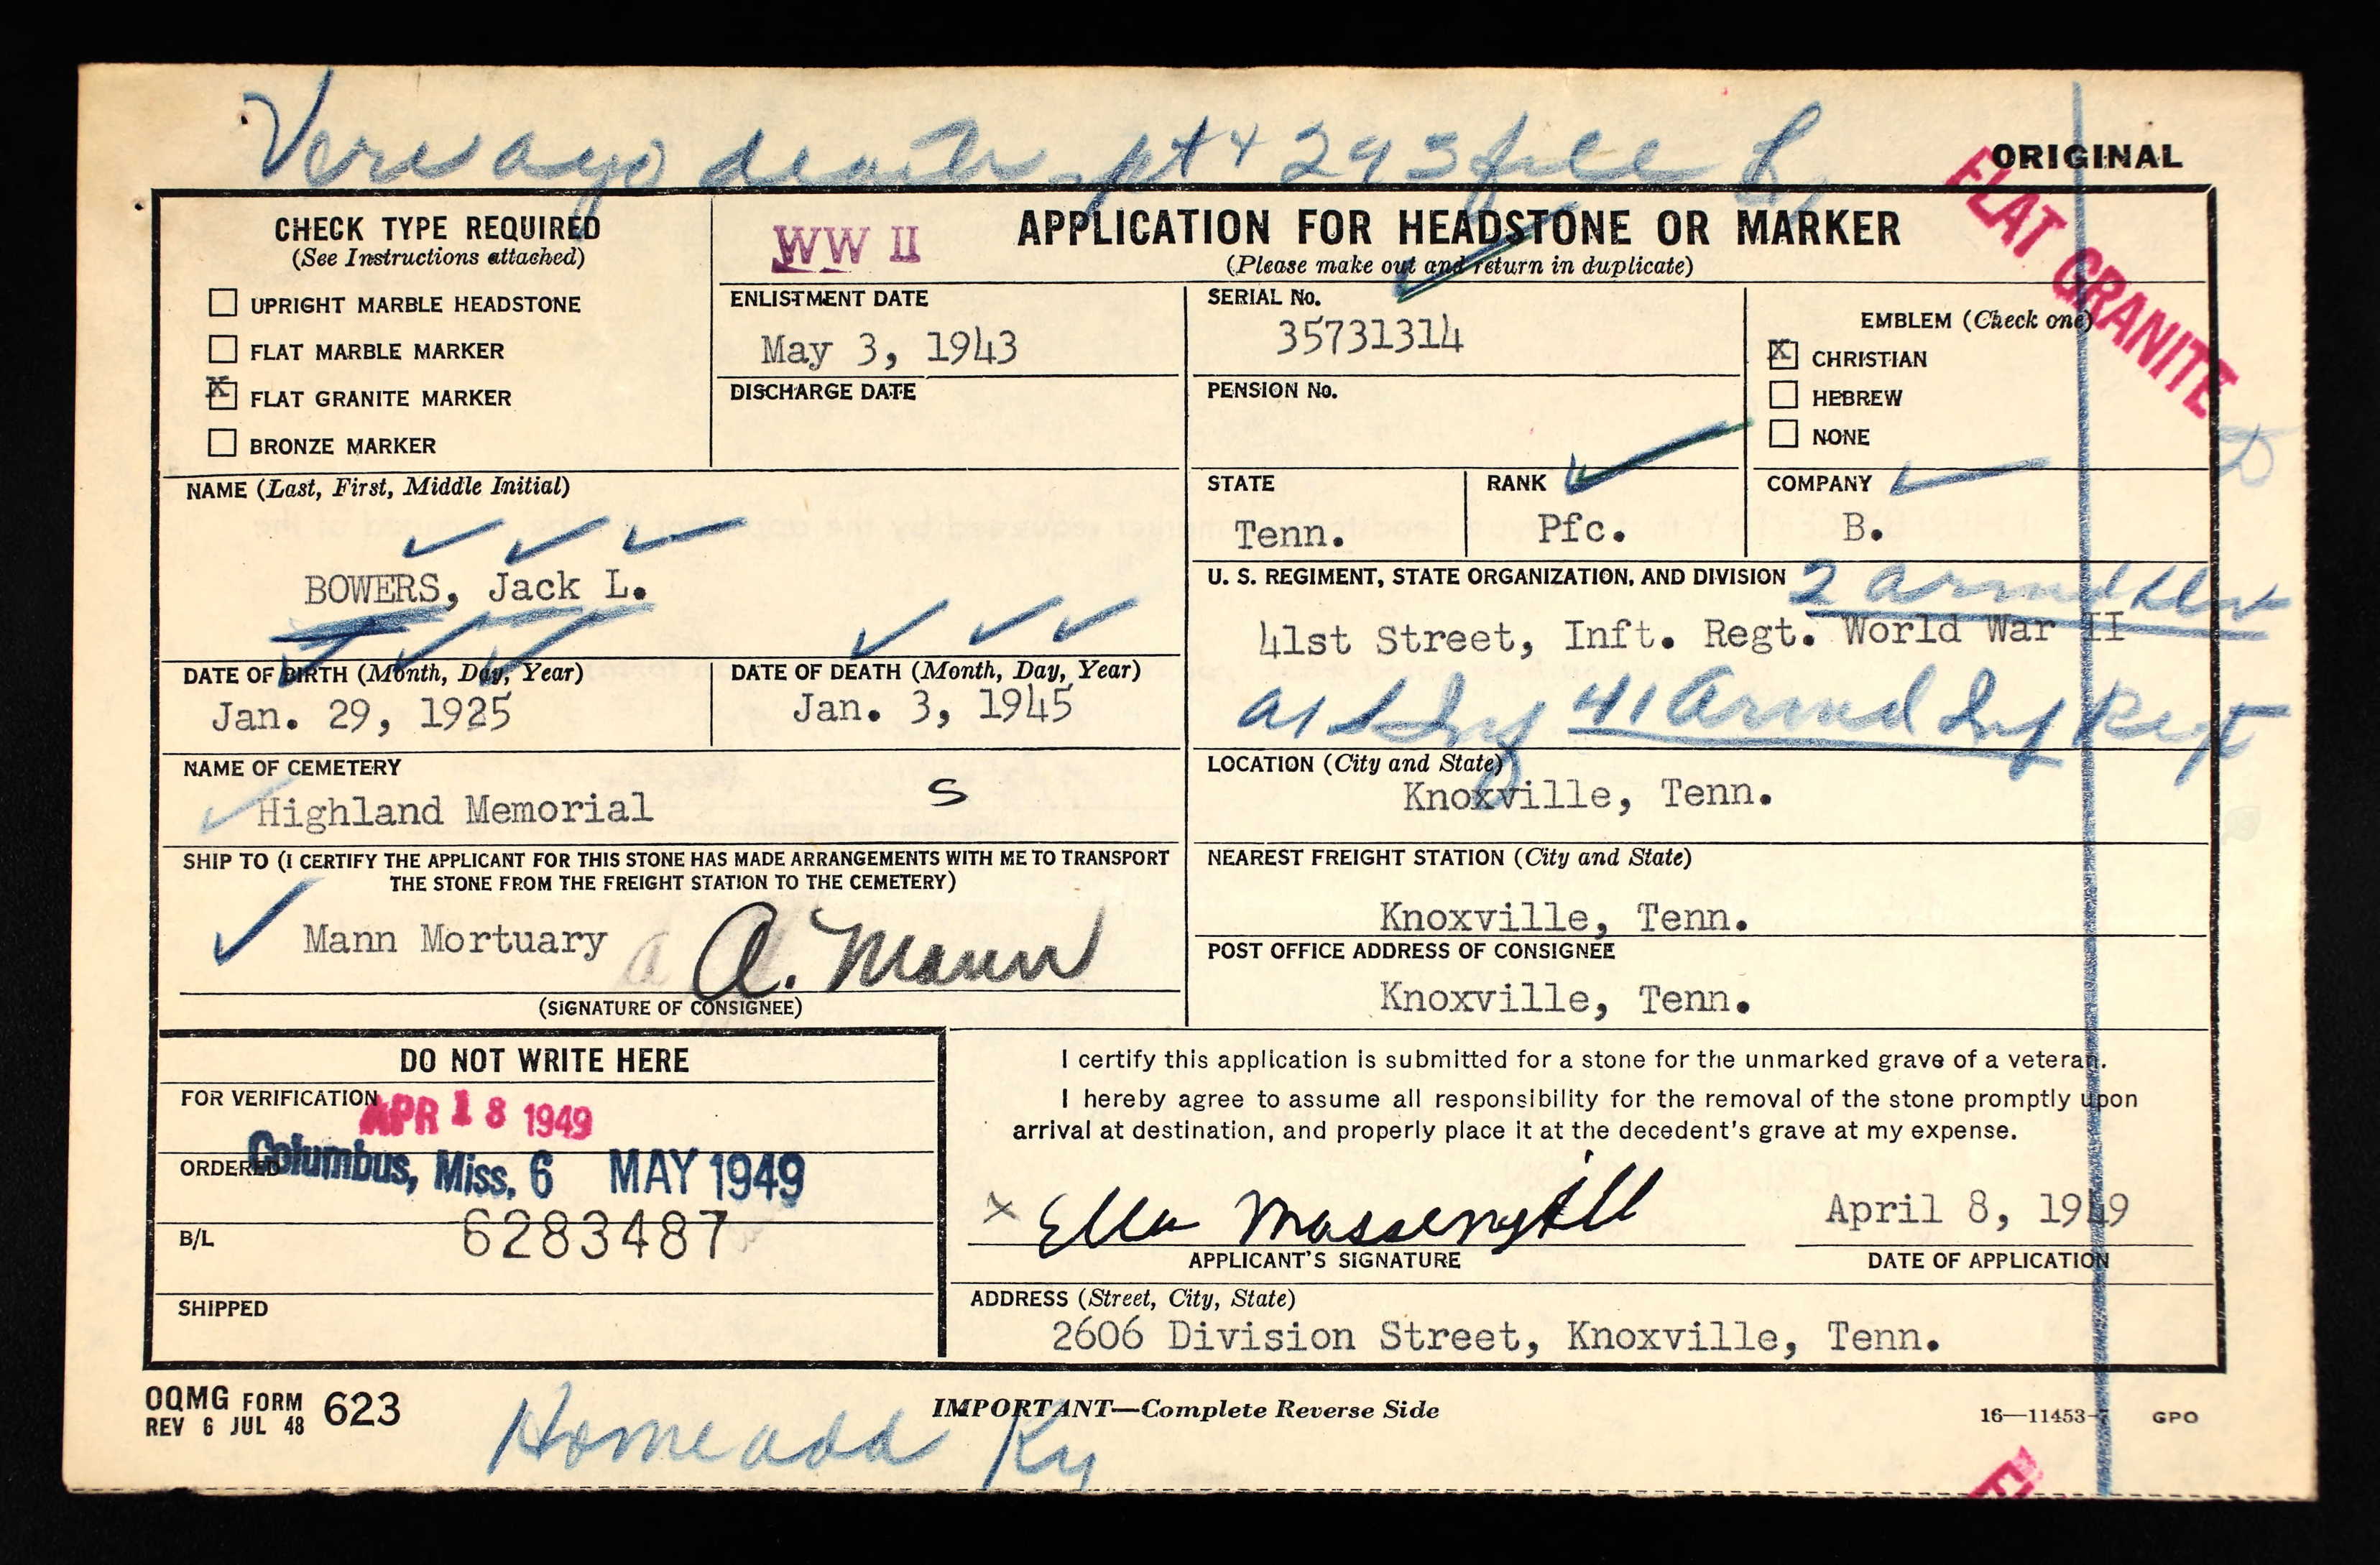 Veris ago death pt + 293 file
ORIGINAL
FLAT GRANITE
CHECK TYPE REQUIRED
(See Instructions attached)
UPRIGHT MARBLE HEADSTONE
FLAT MARBLE MARKER
X FLAT GRANITE MARKER
BRONZE MARKER
WW II
APPLICATION FOR HEADSTONE OR MARKER
(Please make out and return in duplicate)
ENLISTMENT DATE
May 3, 1943
DISCHARGE DATE
SERIAL No.
35731314
PENSION No.
EMBLEM (Check one)
X CHRISTIAN
HEBREW
NONE
NAME (Last, First, Middle Initial)
BOWERS, Jack L.
STATE
Tenn.
RANK
Pfc.
COMPANY
B.
U. S. REGIMENT, STATE ORGANIZATION, AND DIVISION
2 Armd Div
41st Street, Inft. Regt. World War II
41 Armd Inf Regt
DATE OF BIRTH (Month, Day, Year)
Jan. 29, 1925
DATE OF DEATH (Month, Day, Year)
Jan. 3, 1945
NAME OF CEMETERY
Highland Memorial
S
LOCATION (City and State)
Knoxville, Tenn.
SHIP TO (I CERTIFY THE APPLICANT FOR THIS STONE HAS MADE ARRANGEMENTS WITH ME TO TRANSPORT
THE STONE FROM THE FREIGHT STATION TO THE CEMETERY)
Mann Mortuary
A. Mann
(SIGNATURE OF CONSIGNEE)
NEAREST FREIGHT STATION (City and State)
Knoxville, Tenn.
POST OFFICE ADDRESS OF CONSIGNEE
Knoxville, Tenn.
DO NOT WRITE HERE
FOR VERIFICATION
APR 18 1949
ORDERED
Columbus, Miss. 6 MAY 1949
B/L
6283487
SHIPPED
I certify this application is submitted for a stone for the unmarked grave of a veteran.
I hereby agree to assume all responsibility for the removal of the stone promptly upon
arrival at destination, and properly place it at the decedent's grave at my expense.
x Ella Massengill
APPLICANT'S SIGNATURE
April 8, 1949
DATE OF APPLICATION
ADDRESS (Street, City, State)
2606 Division Street, Knoxville, Tenn.
OQMG FORM 623
REV 6 JUL 48
IMPORTANT—Complete Reverse Side
16—11453-
GPO
Home add Ky